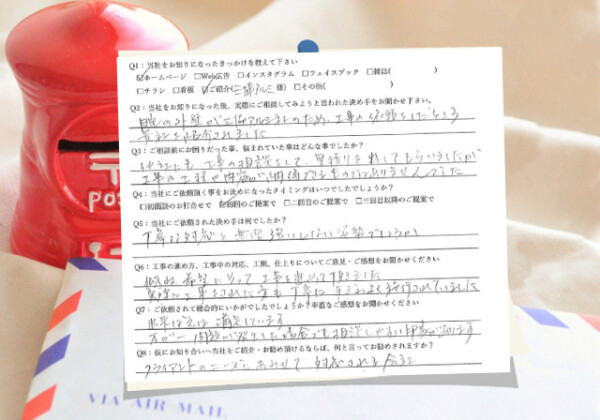 Q1:当社をお知りになったきっかけを教えて下さい
☑ホームページ □Web広告 □インスタグラム □フェイスブック □雑誌( )
□チラシ □看板 ☑ご紹介(三協アルミ 様) □その他( )
Q2:当社をお知りになった後、実際にご相談してみようと思われた決め手をお聞かせ下さい。
既設の外壁が三協アルミ のため、工事の依頼をしたところ
貴社を紹介されました
Q3:ご相談前にお困りだった事、悩まれていた事はどんな事でしたか?
にも工事の相談をして、見積りを出してもらいましたが
工事の工程や内容が納得できるものではありませんでした
Q4:当社にご依頼頂く事をお決めになったタイミングはいつでしたでしょうか?
□初面談のお打合せで ☑初回のご提案で □二回目のご提案で □三回目以降のご提案で
Q5:当社にご依頼された決め手は何でしたか?
丁寧な対応と無理強いしない姿勢でしょうか
Q6:工事の進め方、工事中の対応、工期、仕上りについてご意見・ご感想をお聞かせください
希望に沿って工事を進めて頂きました
工事をされた方も丁寧に
Q7:ご依頼されて総合的にいかがでしたでしょうか?率直なご感想をお聞かせください
出来ばえは満足しています
問題が発生した場合でも相談しやすい印象があります
Q8:仮にお知り合いへ当社をご紹介・お勧め頂けるならば、何と言ってお勧めされますか?
クライアントのニーズにあわせて 対応される会社
POS
VIA AIR MAIL